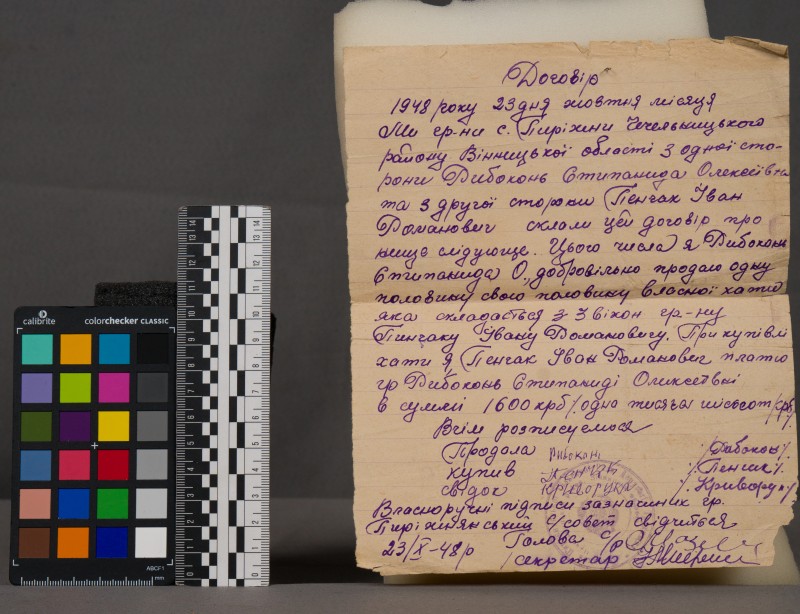 Договір
1948 року 23 дня жовтня місяця
Ми гр-ни с. Пиріжни Чечельницького
району Вінницької області з одної сто-
рони Рибоконь Стипанида Олексіївна
та з другої сторони Пенчак Іван
Романович склали цей договір про
нище слідующе. Цього числа я Рибоконь
Стипанида О., добровільно продаю одну
половину свою половину власної хати
яка складається з 3 вікон гр-ну
Пинчаку Івану Романовичу. При купівлі
хати я Пенчак Іван Романович платю
гр Рибоконь Стипаниді Оликсеївні
в суммі 1600 крб /. одна тисяча шісьсот/крб/.
В чім розписуємося
Продала Рибоконь /Рибоконь/
купив Пенчак /Пенчак/
свідок Криворука /Криворук/
Власноручні підписи зазначиних гр.
Пиріжнянський с/совет свідчиться
23/X-48 р Голова с/р
/секретар
calibrite colorchecker CLASSIC
ABCF1
mm
0 1 2 3 4 5 6 7 8 9 10 11 12 13 14